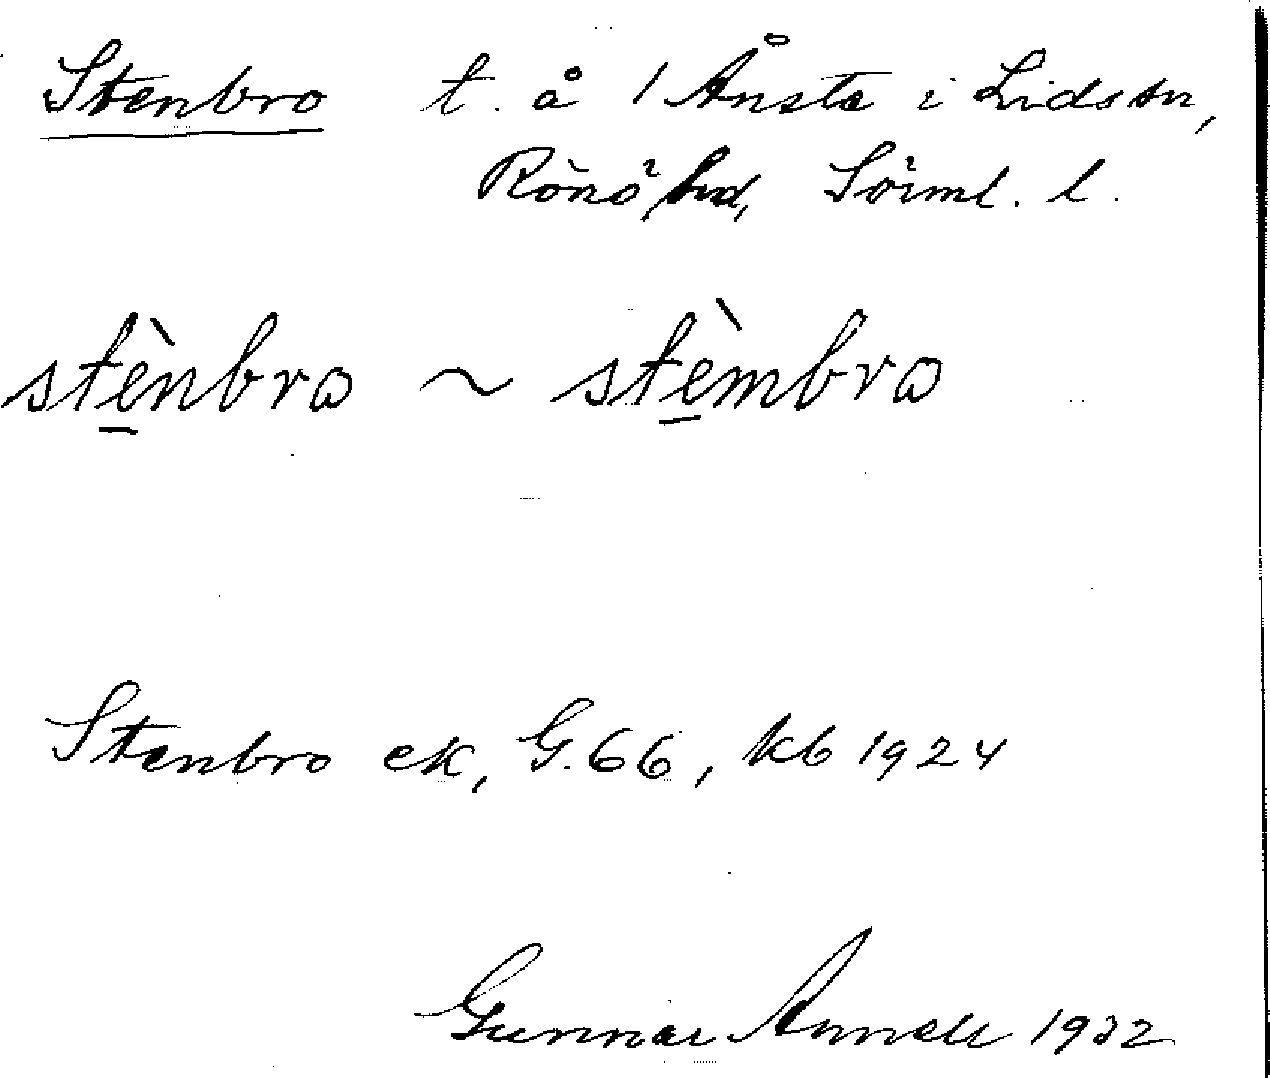 Stenbro t. å 1 Ånsta i Lids sn,
Rönö hd, Sörml. l.
stè̱nbro ~ stè̱mbro
Stenbro ek, G. 66, kb 1924
Gunnar Annell 1932